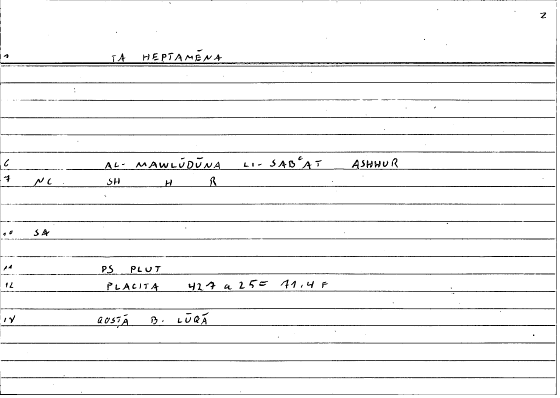 2
1 TA HEPTAMĒNA
6 AL- MAWLŪDŪNA LI- SABʿAT ASHHUR
7 NC SH H R
10 SA
11 PS PLUT
12 PLACITA 427 a 25= 11.4 F
14 QOSṬĀ B. LŪQĀ